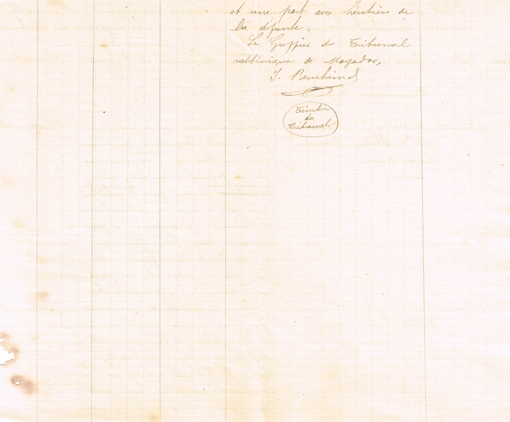 et une part aux héritiers de
la défunte.
Le Greffier du Tribunal
rabbinique de Mogador,
Timbre
du
Tribunal